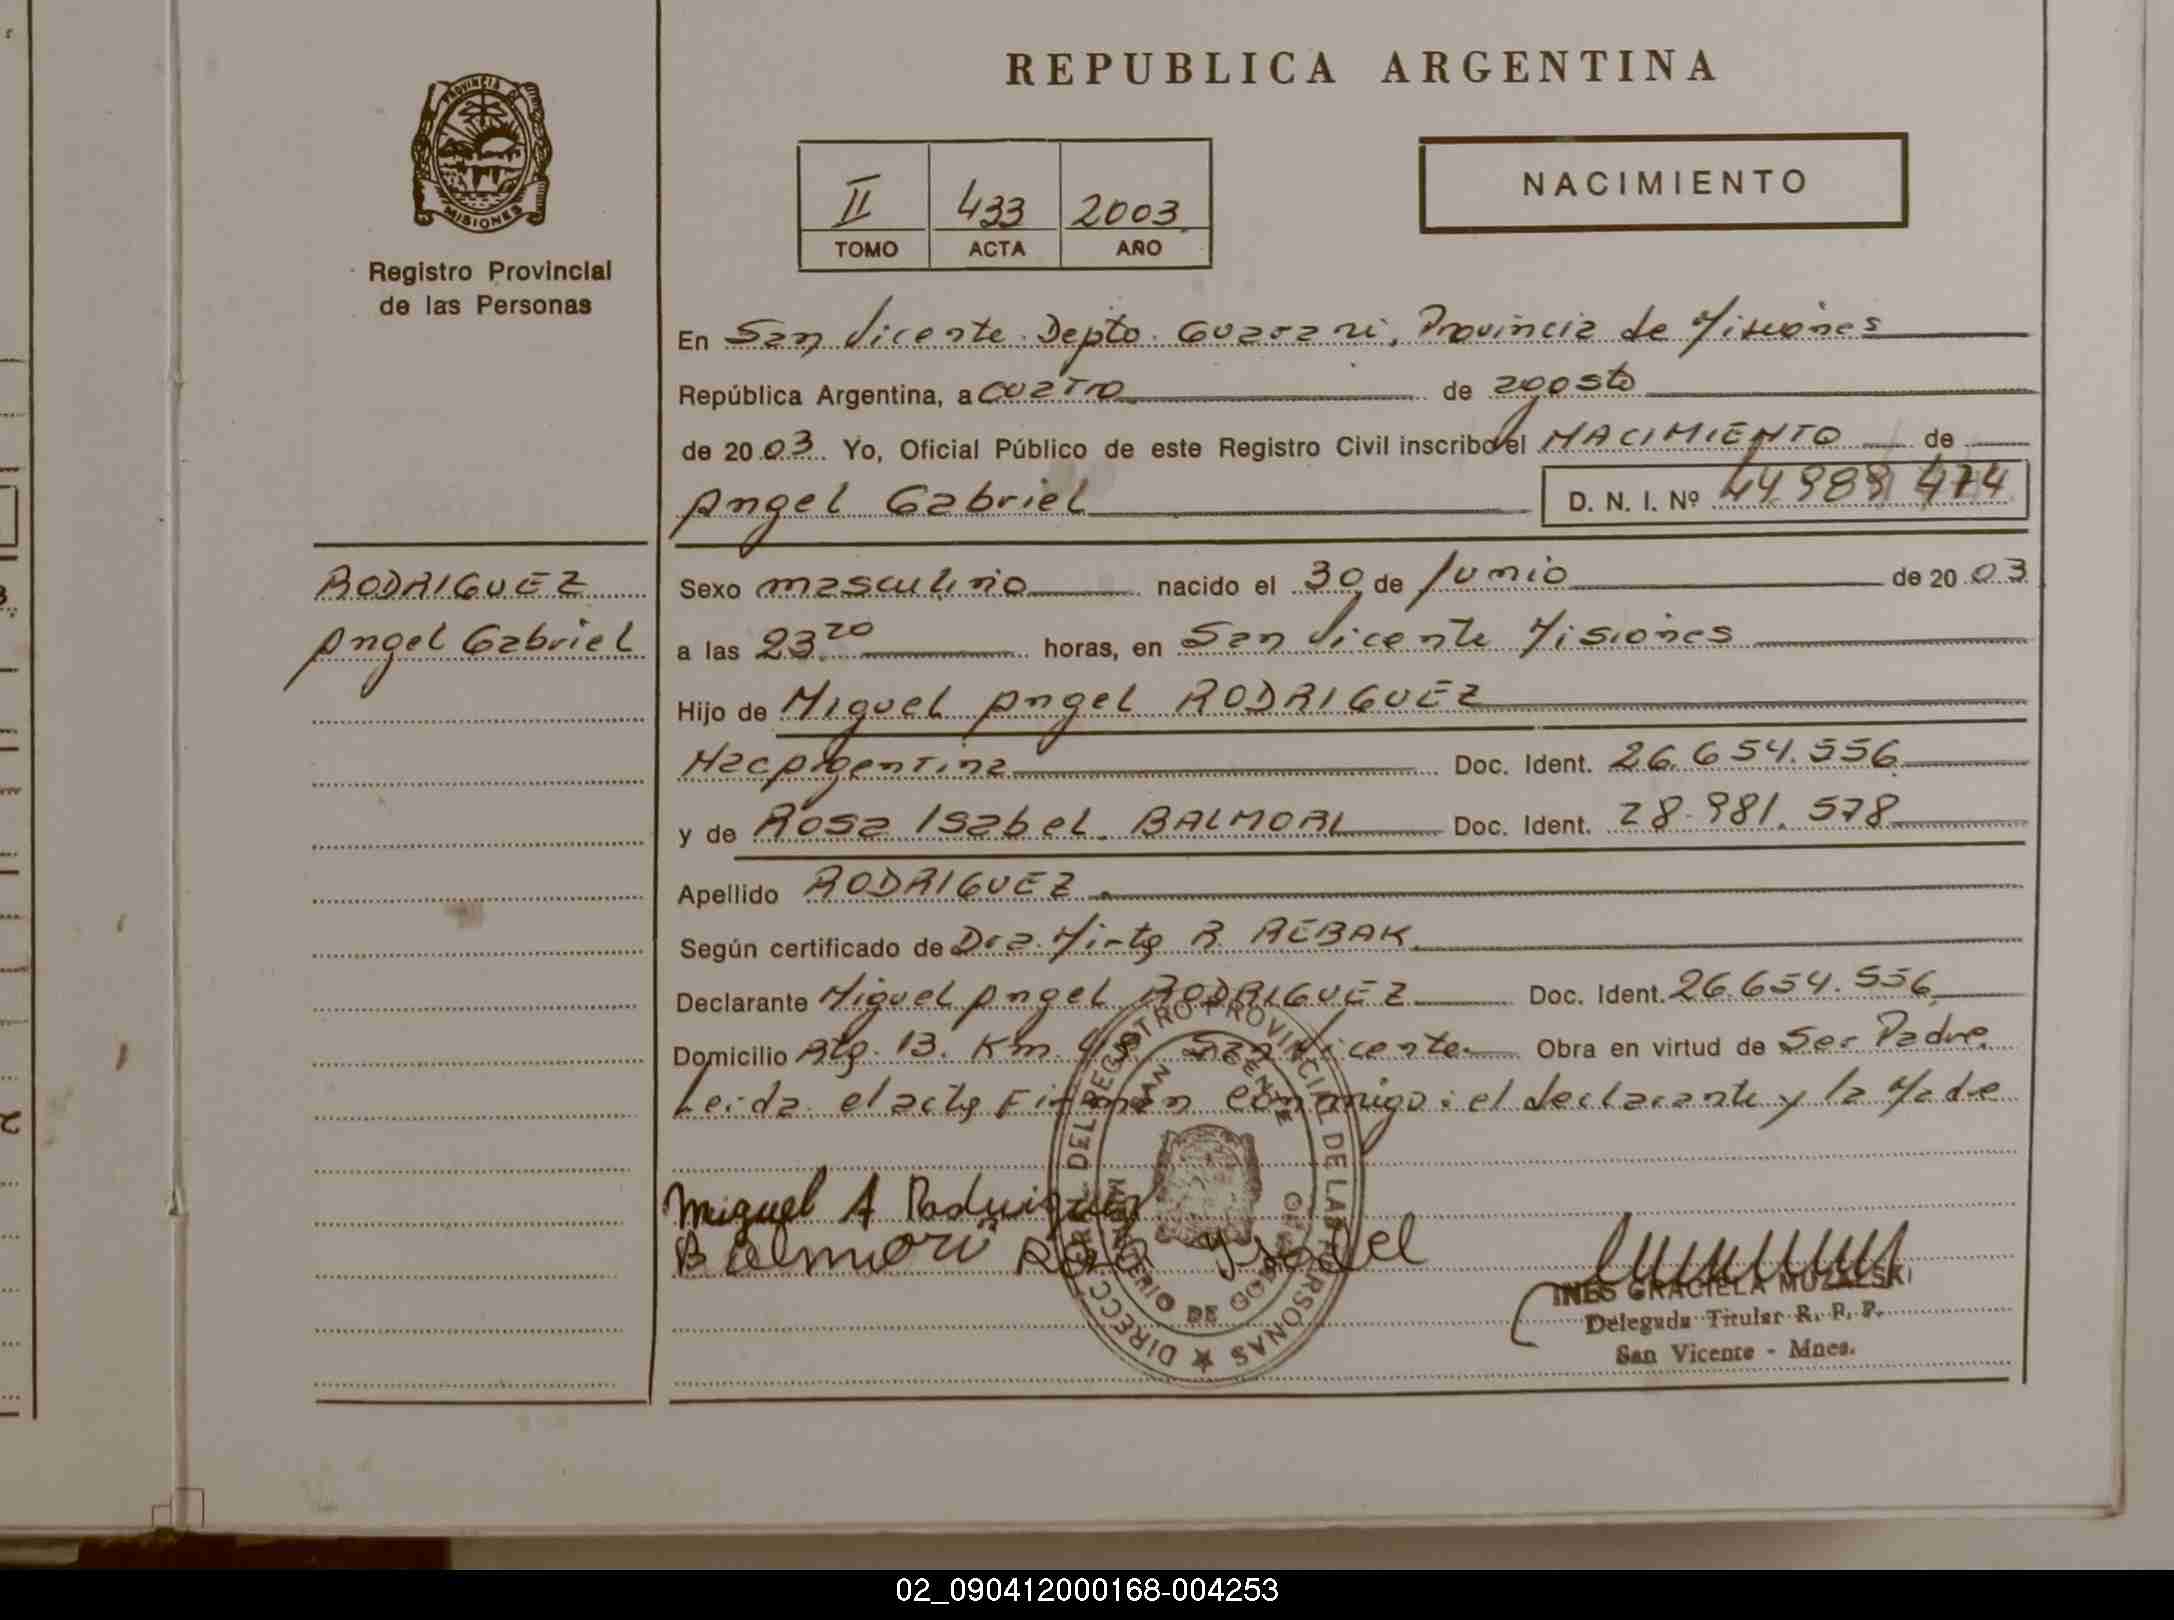 PROVINCIA DE
MISIONES
Registro Provincial
de las Personas
RODRIGUEZ
Angel Gabriel
REPUBLICA ARGENTINA
II 433 2003
TOMO ACTA AÑO
NACIMIENTO
En San Vicente Depto. Guarani, Provincia de Misiones
República Argentina, a cuatro de agosto
de 2003. Yo, Oficial Público de este Registro Civil inscribo el NACIMIENTO de
Angel Gabriel D. N. I. Nº 44 989 474
Sexo masculino nacido el 30 de Junio de 2003
a las 23.20 horas, en San Vicente Misiones
Hijo de Miguel Angel RODRIGUEZ
Nac Argentina Doc. Ident. 26.654.556
y de Rosa Isabel BALMORI Doc. Ident. 28.981.578
Apellido RODRIGUEZ.
Según certificado de Dra. Mirta R. REBAK
Declarante Miguel Angel RODRIGUEZ Doc. Ident. 26.654.556
Domicilio Rta. 13. Km. San Vicente Obra en virtud de Ser Padre.
Leida el acta Firman conmigo: el declarante y la Madre
Miguel A Rodriguez
Balmori Rosa Ysabel
DIRECC. GRAL. DEL REGISTRO PROVINCIAL DE LAS PERSONAS
MINISTERIO DE GOBIERNO
SAN VICENTE
INES GRACIELA MUZALSKI
Delegada Titular R. P. P.
San Vicente - Mnes.
02_090412000168-004253